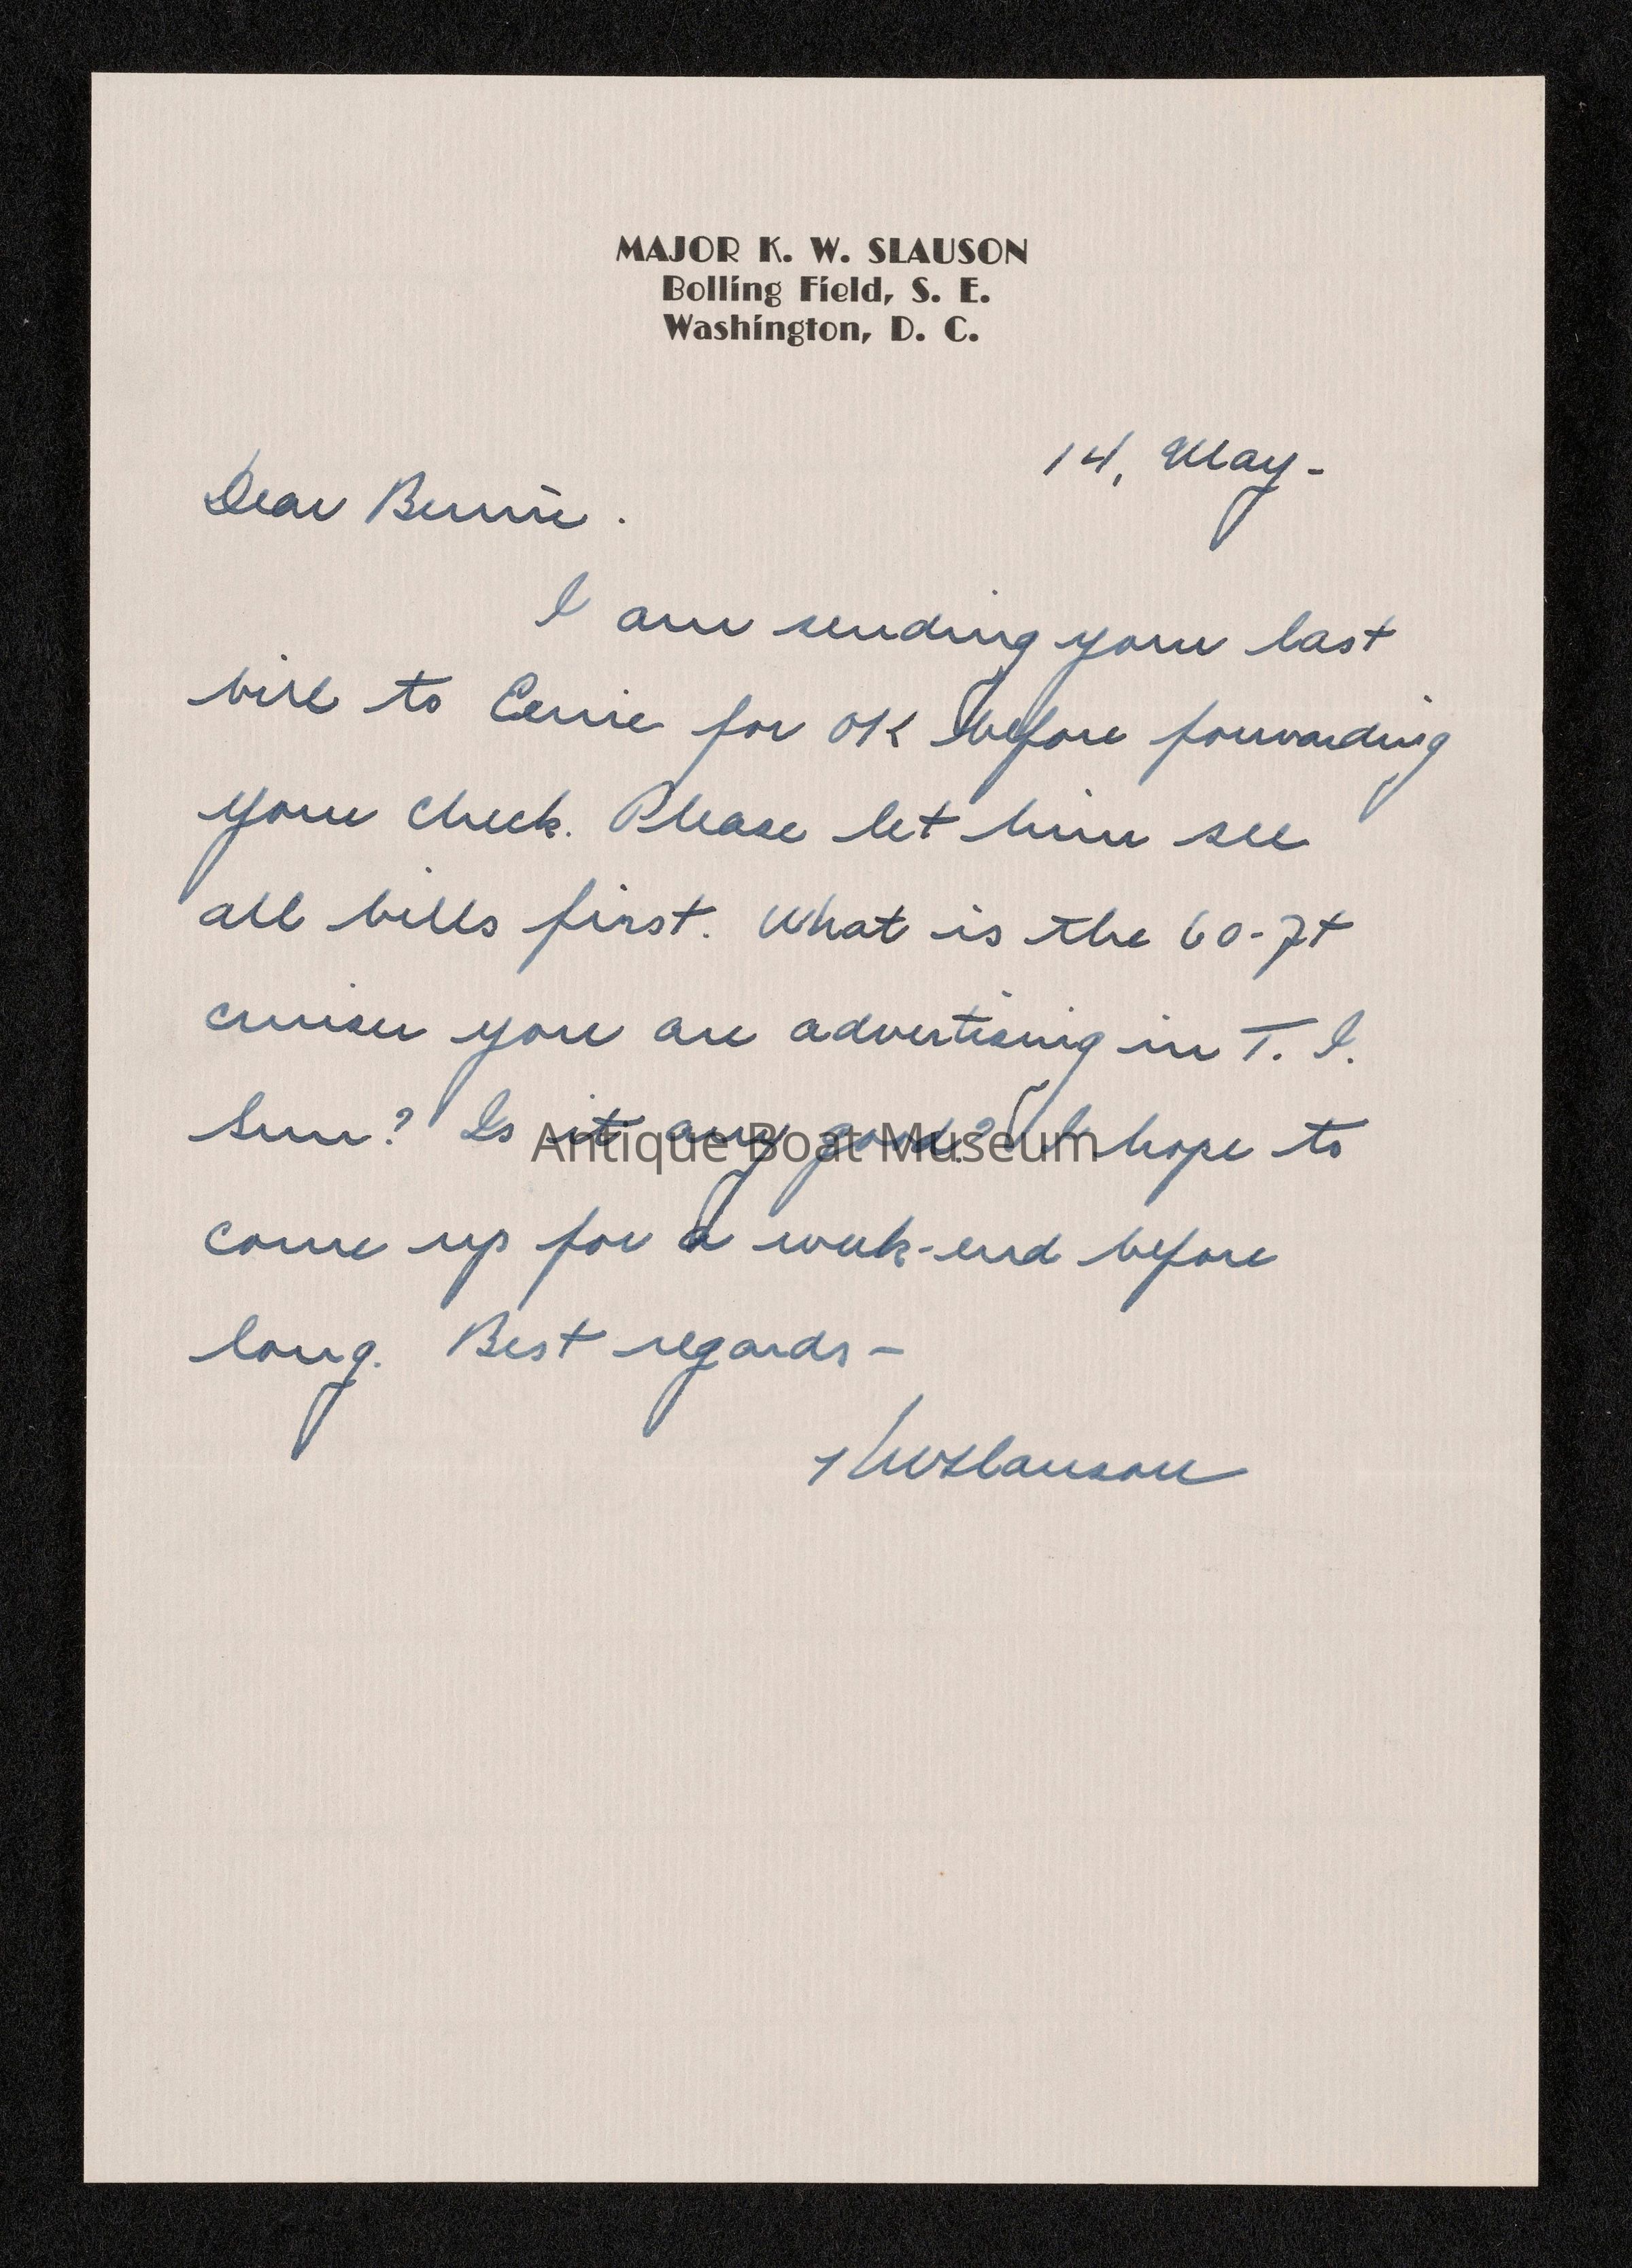 MAJOR K. W. SLAUSON
Bolling Field, S. E.
Washington, D. C.
14, May -
Dear Bernie.
I am sending your last
bill to Ernie for OK before forwarding
your check. Please let him see
all bills first. What is the 60-ft
cruiser you are advertising in T. I.
Sun? Is it any good? I hope to
Antique Boat Museum
come up for a week-end before
long. Best regards -
KWSlauson